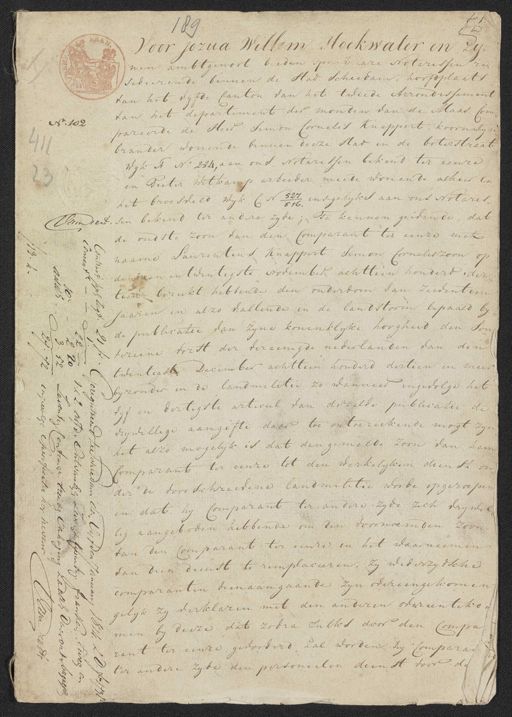 189
Voor Jozua Willem Hoekwater en Zy-
men ambtgenoot beiden openbare Notarissen re
sideerende binnen de Stad Schiedam, hoofdplaats
van het vyfde Canton van het tweede Arrondissement
van het departement der monden van de Maas Com
pareerde de Heer Simon Cornelis Knappert koornwyn
brander wonende binnen deeze Stad in de boterstraat
Wyk A No 234, aan ons Notarissen bekend ter eenre
en Pieter Witkamp arbeider mede wonende alhier in
het broersveld Wyk C No 527/516 insgelyks aan ons Notaris
sen bekend ter andre zyde; Te kennen gevende, dat
de oudste zoon van den Comparant ter eenre met
naame Laurentius Knappert Simon Corneliszoon op
den een en twintigste November achttien honderd der
tien bereikt hebbende den ouderdom van zeventien
jaaren en alzo vallende in de landstorm bepaald by
de publicatie van zyne koninklyke hoogheid den Sou
vereine vorst der vereenigde nederlanden van den
twintigste December achttien honderd dertien en meer
byzonder in de landmilitie zo wanneer ingevolge het
vyf en dertigste articul van dezelfde publicatie de
vrywillige aangifte daar te ontoereikende mogt zyn
het alzo mogelyk is dat den gemelde zoon van den
Comparant ter eenre tot den werkelyken dienst on
der de voorschreevene landmilitie worde opgeroepen
en dat hy Comparant ter andre zyde zich vrywil
lig aangeboden hebbende om den voornoemden zoon
van den Comparant ter eenre en het waarneemen
van dien dienst te remplaceren, zy wederzydsche
comparanten dienaangaande zyn overeengekomen
gelyk zy verklaren met den anderen overeentekom
en by deeze dat zodra zulks door den Compa
rant ter eenre gevorderd zal worden hy Compara
ter andre zyde den personeelen dienst voor de
No 102
411
23